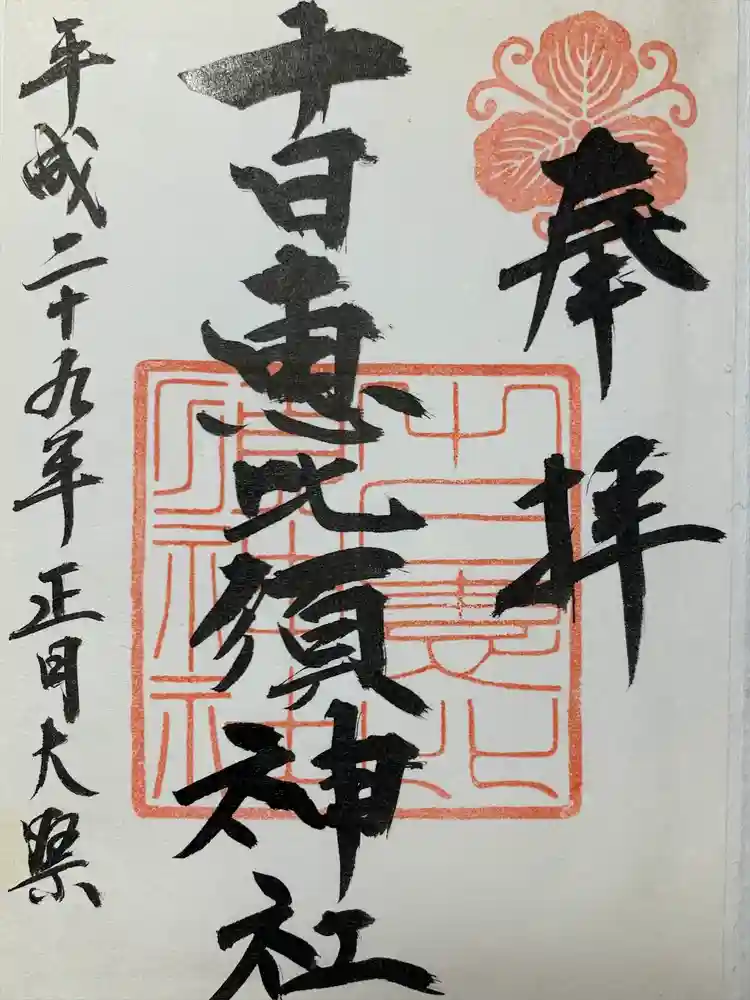 奉拝
十日恵比須神社
平成二十九年正月大祭